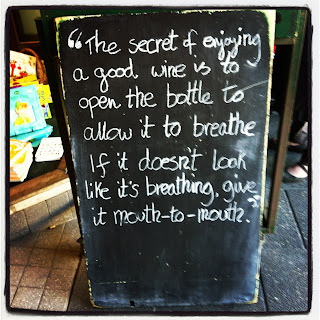 “The secret of enjoying
a good wine is to
open the bottle to
allow it to breathe
If it doesn't look
like it's breathing, give
it mouth-to-mouth.”